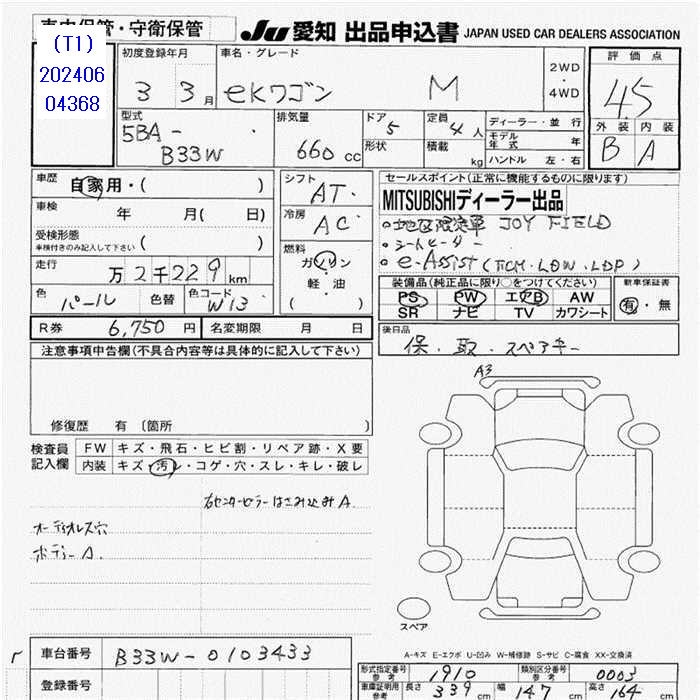 車内保管・守衛保管
JU 愛知 出品申込書 JAPAN USED CAR DEALERS ASSOCIATION
(T1)
202406
04368
初度登録年月 車名・グレード
3 3月 eKワゴン M
2WD
・
4WD
評価点
4.5
外装 内装
B A
型式 5BA-
B33W
排気量 660 cc
ドア 5 定員 4人
形状 積載 kg
ディーラー・並行
モデル年式 年
ハンドル 左・右
車歴 自家用・( )
車検 年 月( 日)
受検形態
車検付きのみ記入して下さい ( )
走行 万2千229km
色 パール 色替 色コード W13
シフト AT
冷房 AC
燃料
ガソリン
・
軽・油
( )
セールスポイント(正常に機能するものに限ります)
MITSUBISHIディーラー出品
•地区限定車 JOY FIELD
•シートヒーター
•e-Assist(FCM・LDW・LDP)
装備品(純正品に限り○をつけてください)
PS PW エアB AW
SR ナビ TV カワシート
新車保証書
有・無
R券 6,750円 名変期限 月 日
後日品
保・取・スペアキー
注意事項申告欄(不具合内容等は具体的に記入して下さい)
修復歴 有 〔箇所 〕
検査員
記入欄
FW キズ・飛石・ヒビ割・リペア跡・X要
内装 キズ・汚レ・コゲ・穴・スレ・キレ・破レ
右センターピラーはさみ込みA.
オーディオレス穴
ボディーA.
A3
スペア
A-キズ E-エクボ U-凹み W-補修跡 S-サビ C-腐食 XX-交換済
車台番号 B33W-0103433
登録番号
形式指定番号
参考 1910
類別区分番号
参考 0003
車庫証明用
参考 長さ 339cm 幅 147cm 高さ 164cm